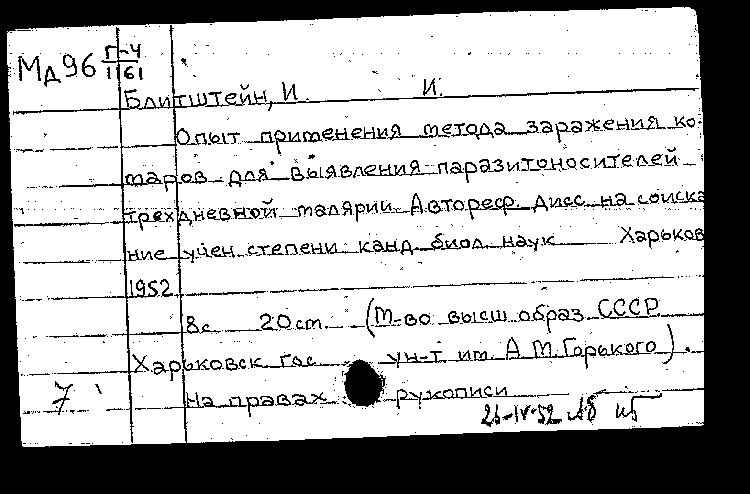 Мд96 Г-4
1161
Блитштейн, И. И.
Опыт применения метода заражения ко-
маров для выявления паразитоносителей
трехдневной малярии. Автореф. дисс. на соиска
ние учен. степени канд. биол. наук Харьков
1952
8с 20см. (М-во высш. образ. СССР.
Харьковск. гос. ун-т. им. А. М. Горького).
На правах рукописи
7
26-IV-52